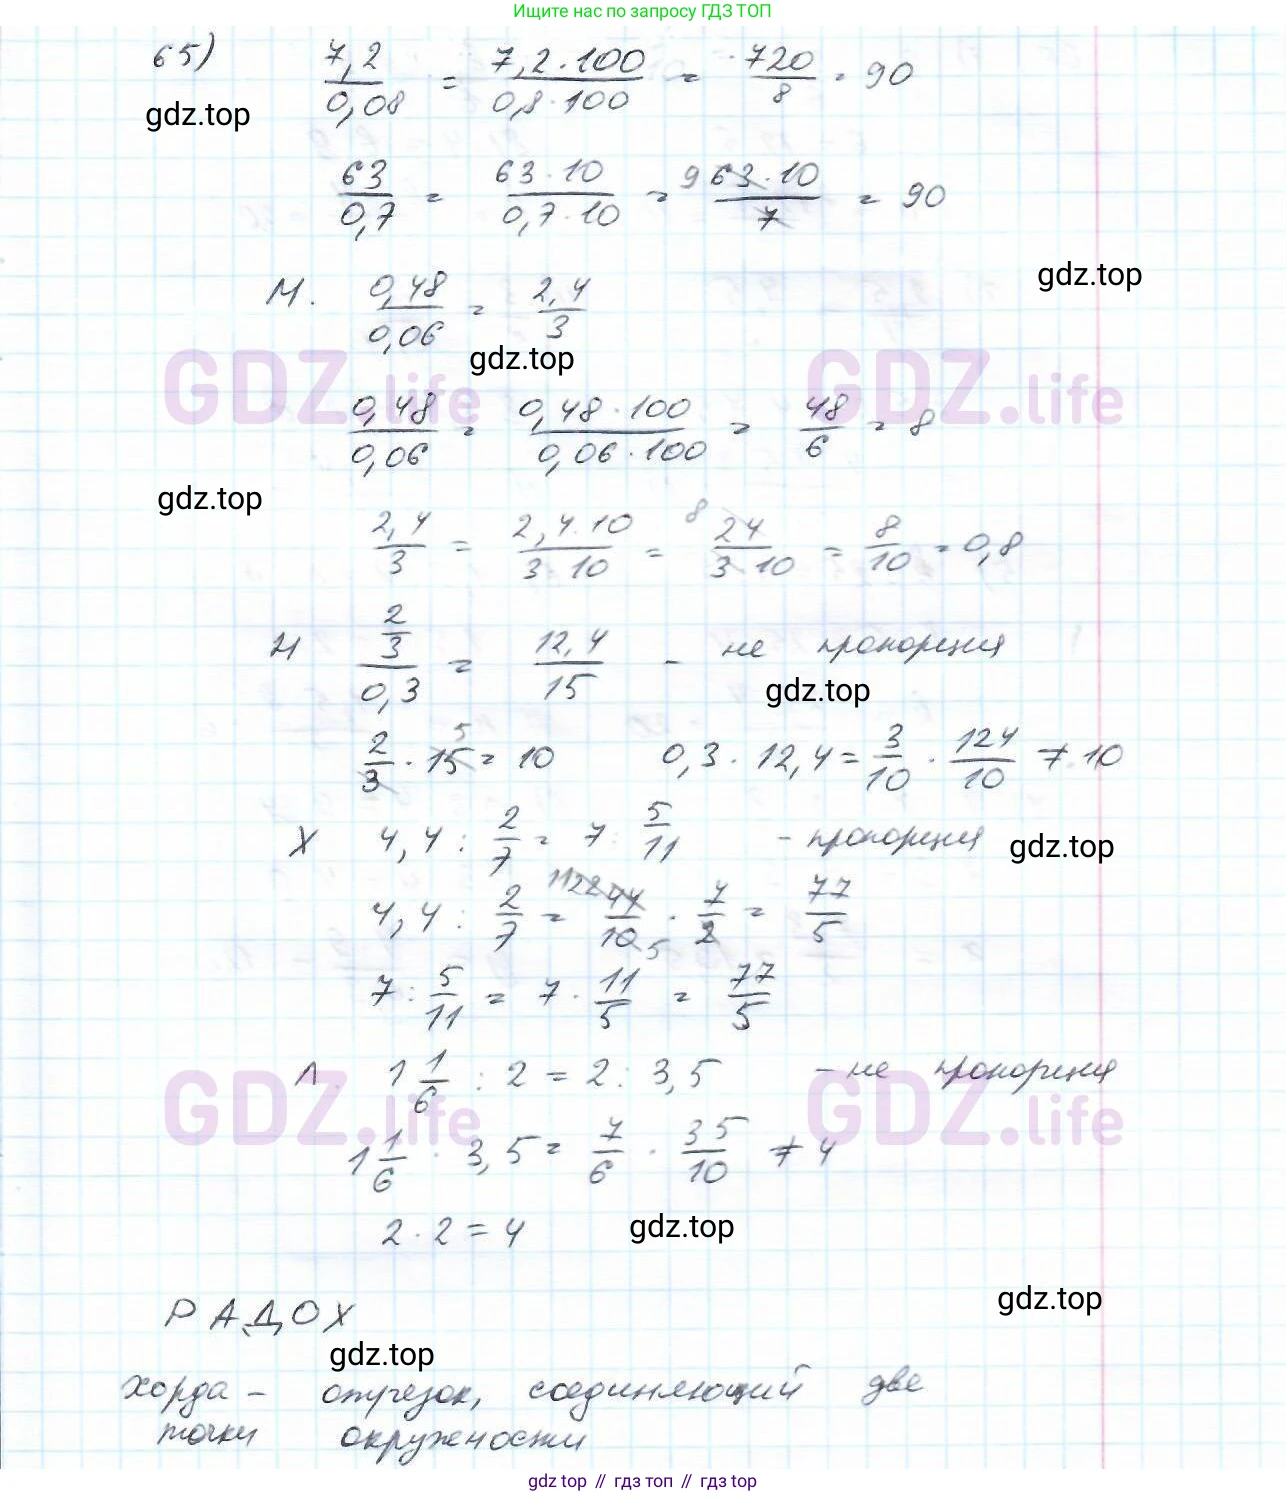 Ищите нас по запросу ГДЗ ТОП
65) 7,2/0,08 = 7,2·100/0,8·100 = 720/8 = 90
gdz.top
63/0,7 = 63·10/0,7·10 = 9 63·10/7 = 90
gdz.top
М. 0,48/0,06 = 2,4/3
gdz.top
GDZ.life GDZ.life
0,48/0,06 = 0,48·100/0,06·100 = 48/6 = 8
gdz.top
2,4/3 = 2,4·10/3·10 = 8 24/3·10 = 8/10 = 0,8
Н 2/3/0,3 = 12,4/15 - не пропорция
gdz.top
2/3 · 15 5 = 10 0,3 · 12,4 = 3/10 · 124/10 ≠ 10
Х 4,4 : 2/7 = 7 : 5/11 - пропорция
gdz.top
4,4 : 2/7 = 11 22 44/10 5 · 7/2 = 77/5
7 : 5/11 = 7 · 11/5 = 77/5
Л. 1 1/6 : 2 = 2 : 3,5 - не пропорция
GDZ.life GDZ.life
1 1/6 · 3,5 = 7/6 · 35/10 ≠ 4
2 · 2 = 4
gdz.top
gdz.top
РАДОХ
gdz.top
хорда - отрезок, соединяющий две
точки окружности
gdz top // гдз топ // гдз top